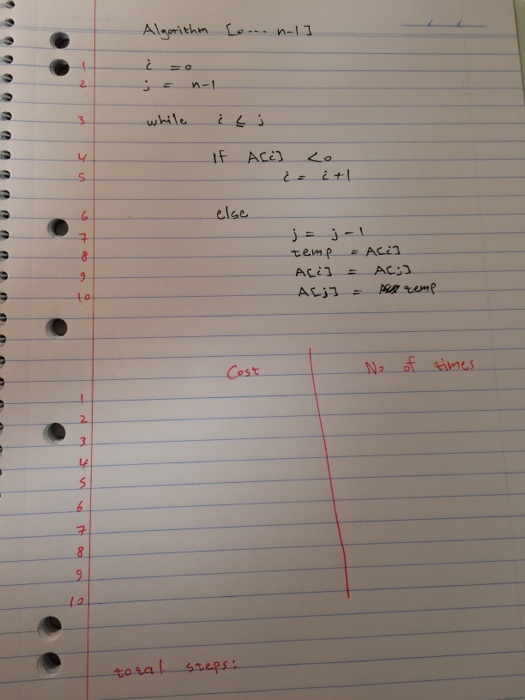 Algorithm [0---- n-1]
1 i = 0
2 j = n-1
3 while i ≤ j
4 If A[i] < 0
5 i = i+1
6 else
7 j = j-1
8 temp = A[i]
9 A[i] = A[j]
10 A[j] = temp
Cost No of times
1
2
3
4
5
6
7
8
9
10
total steps: